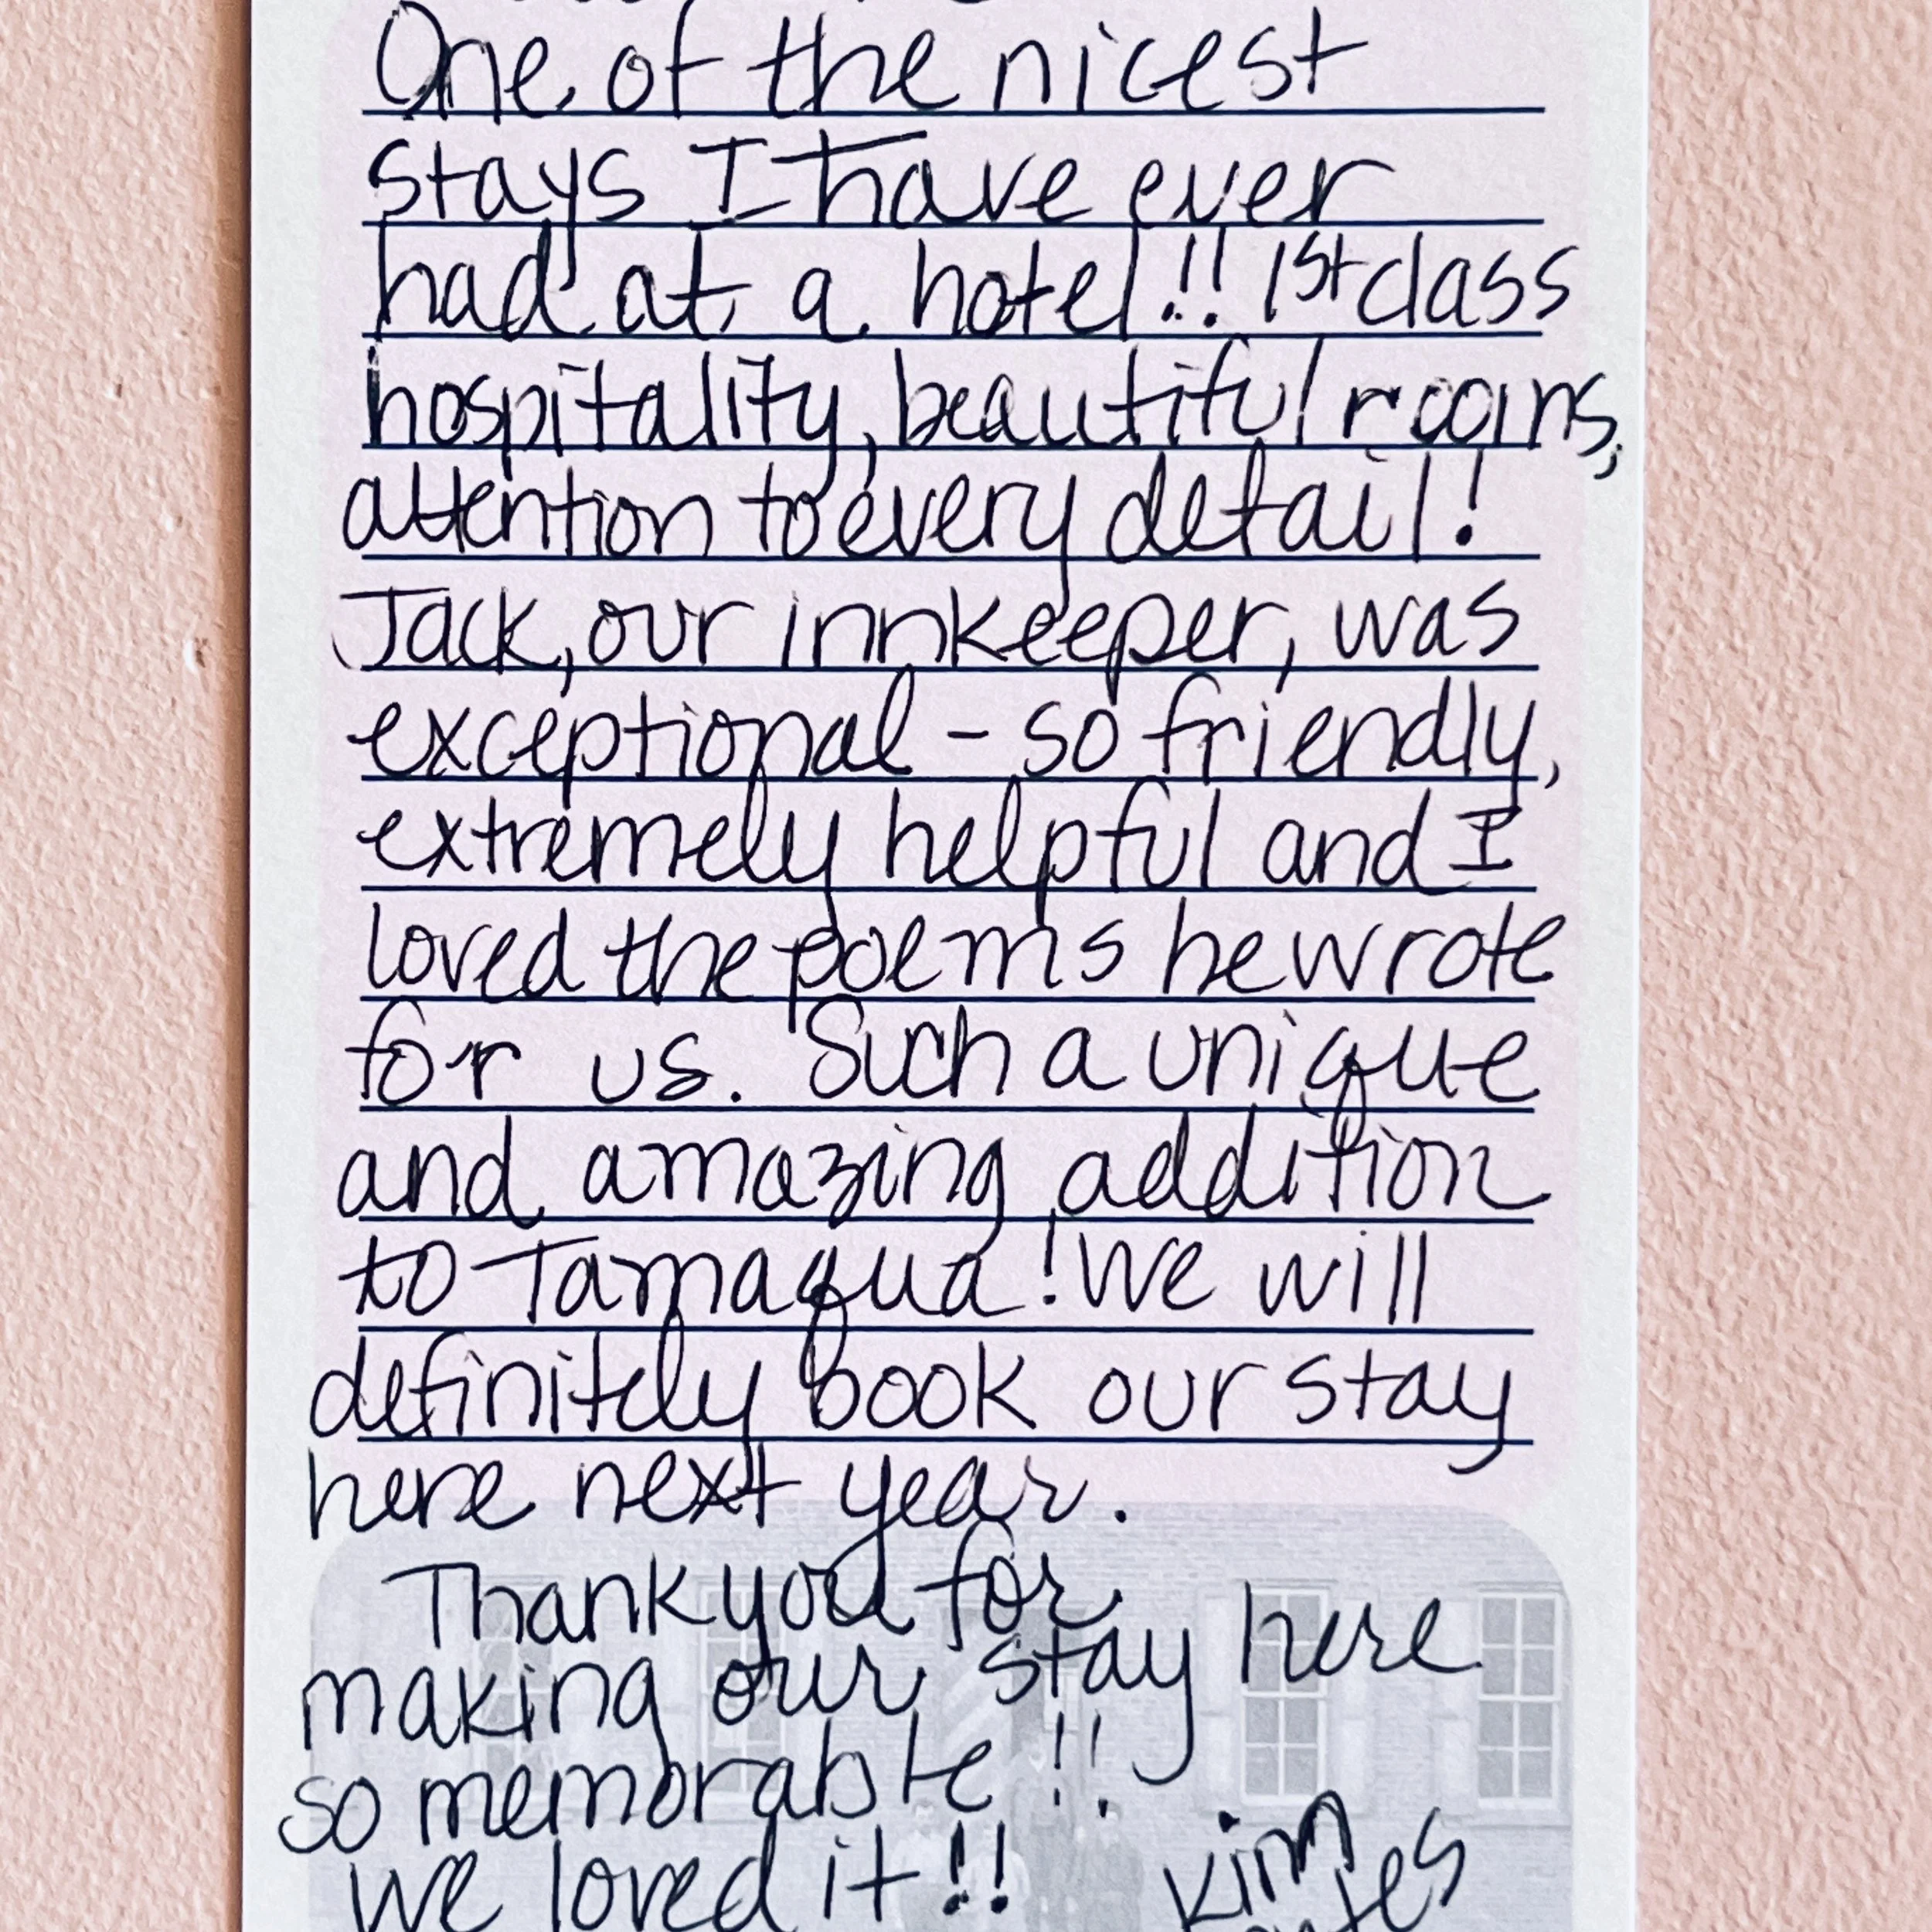 One of the nicest
stays I have ever
had at a hotel!! 1st class
hospitality, beautiful rooms,
attention to every detail!
Jack, our innkeeper, was
exceptional - so friendly,
extremely helpful and I
loved the poems he wrote
for us. Such a unique
and amazing addition
to Tamaqua! We will
definitely book our stay
here next year.
Thank you for
making our stay here
so memorable!!
We loved it!! Kim